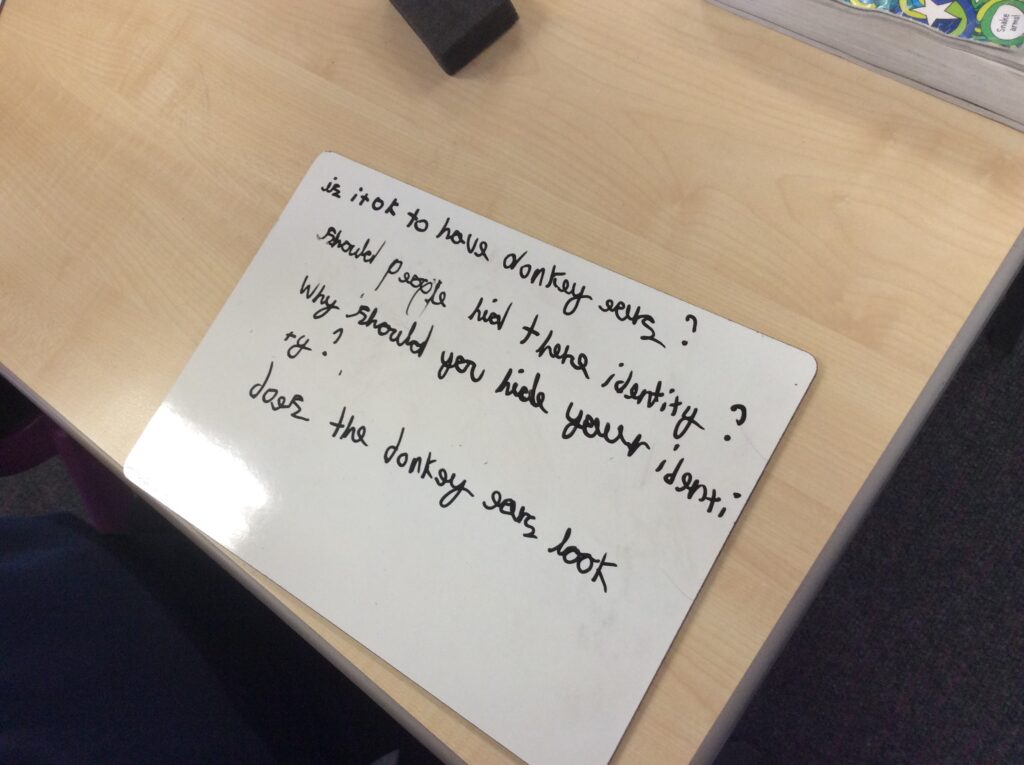 is it ok to have donkey ears ?
should people hid there identity ?
Why should you hide your identi
ty ?
does the donkey ears look
Snake